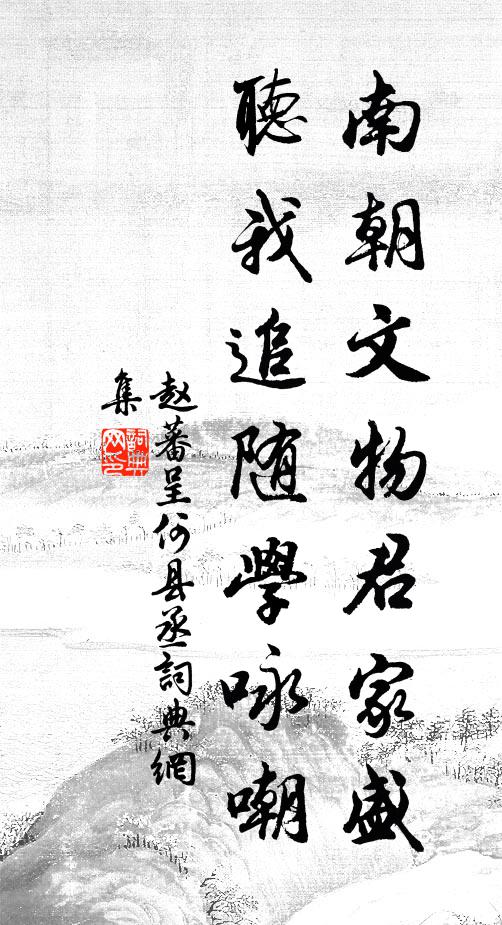 南朝文物君家盛
聽我追随學咏嘲
赵蕃呈何县丞詞典網
集
詞典網印